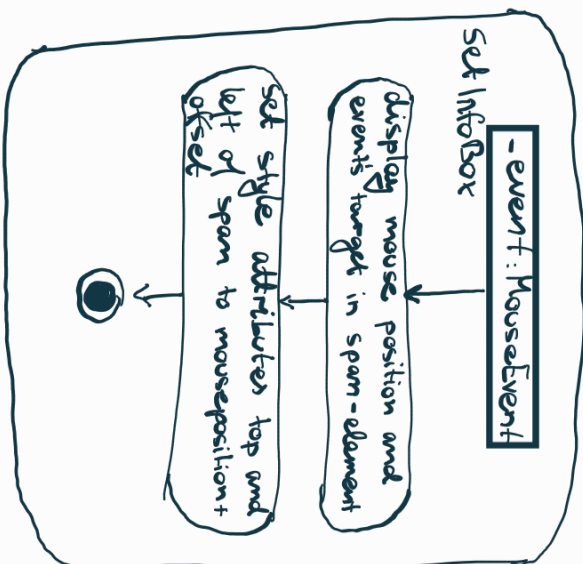 setInfoBox
-event: MouseEvent
display mouse position and
event's target in span-element
set style attributes top and
left of span to mouseposition+
offset